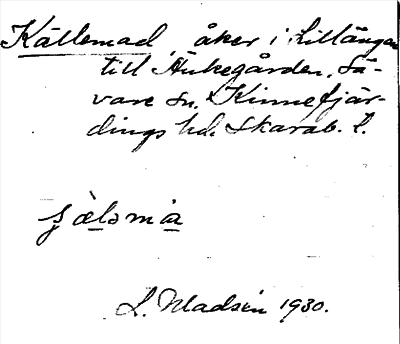 Källemad, åker i Lillängen
till Änkegården, Sä-
vare sn, Kinnefjär-
dings hd. Skarab. l.
L. Madsén 1930.